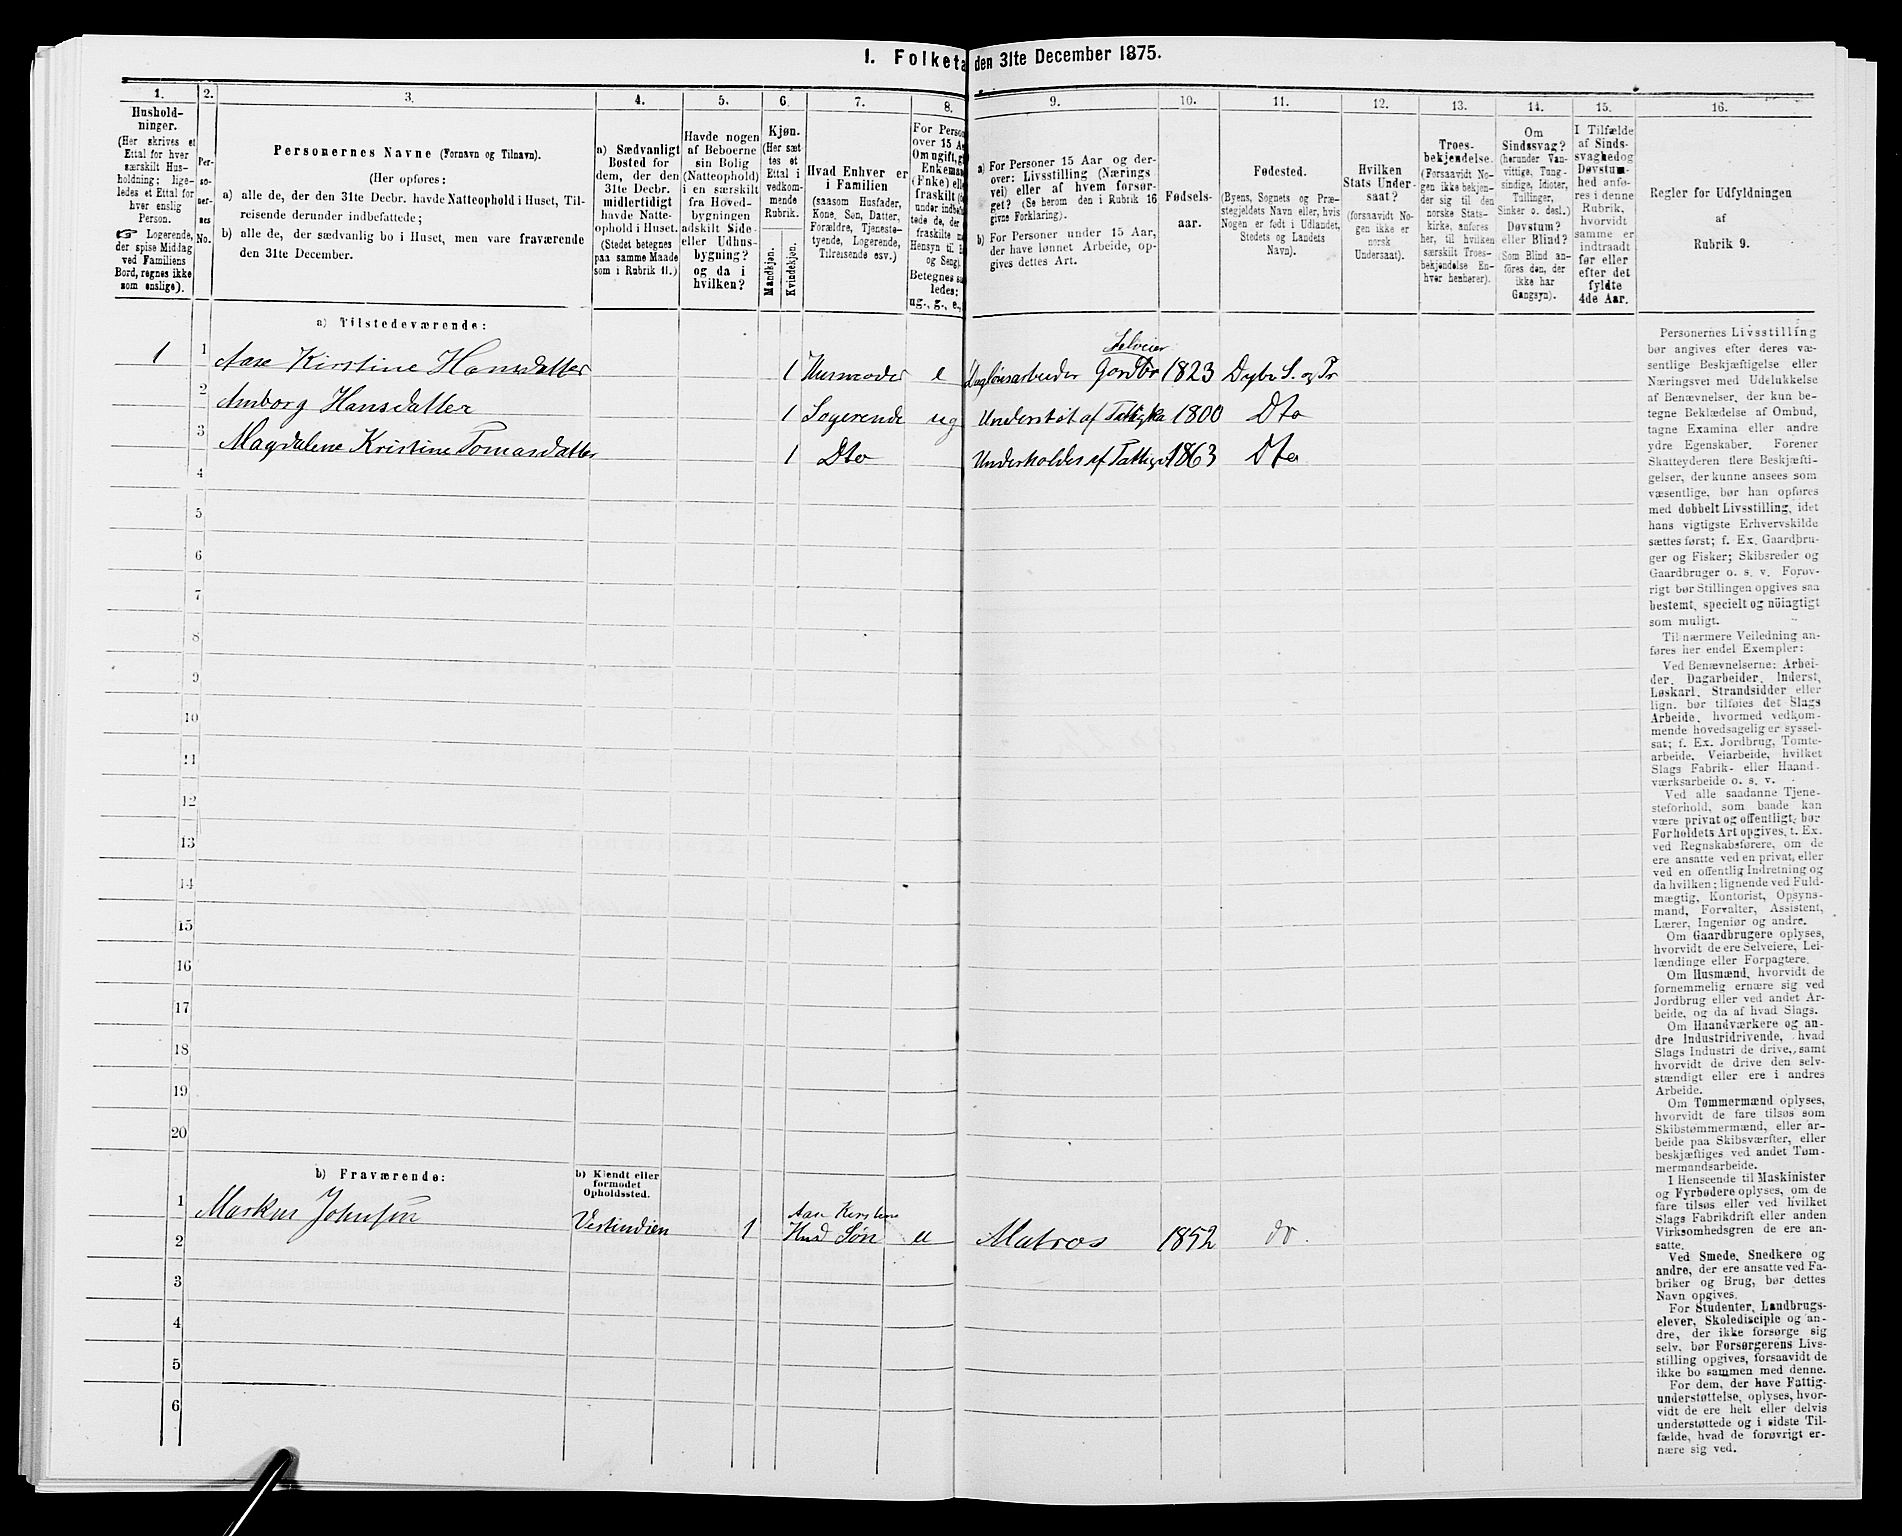 I. Folketa den 31te December 1875.
1.
Hushold-
ninger.
(Her skrives et
Ettal for hver
særskilt Hus-
holdning; lige-
ledes et Ettal for
hver enslig
Person.
Logerende,
der spise Middag
ved Familiens
Bord, regnes ikke
som enslige).
2.
Per-
so-
ner-
nes
No.
3.
Personernes Navne (Fornavn og Tilnavn).
(Her opføres:
a) alle de, der den 31te Decbr. havde Natteophold i Huset, Til-
reisende derunder indbefattede;
b) alle de, der sædvanlig bo i Huset, men vare fraværende
den 31te December.
4.
a) Sædvanligt
Bosted for
dem, der den
31te Decbr.
midlertidigt
havde Natte-
ophold i Huset.
(Stedet betegnes
paa samme Maade
som i Rubrik 11.)
5.
Havde nogen
af Beboerne
sin Bolig
(Natteophold)
i en særskilt
fra Hoved-
bygningen
adskilt Side-
eller Udhus-
bygning?
og da i
hvilken?
6.
Kjøn.
(Her sæt
tes et
Ettal i
vedkom-
mende
Rubrik.
Mandkjøn.
Kvindekjøn.
7.
Hvad Enhver er
i Familien
(saasom Husfader,
Kone, Søn, Datter,
Forældre, Tjeneste-
tyende, Logerende,
Tilreisende osv.)
8.
For Person
over 15 Aa
Om ugift, g
Enkeman
(Enke) elle
fraskilt (
under indbef
tede de, der
fraskilte m
Hensyn til
og Seng).
Betegnes sa
ledes:
ug., g., e.,
9.
a) For Personer 15 Aar og der-
over: Livsstilling (Nærings
vei) eller af hvem forsør-
get? (Se herom den i Rubrik 16
givne Forklaring).
b) For Personer under 15 Aar,
der have lønnet Arbeide, op-
gives dettes Art.
10.
Fødsels-
aar.
11.
Fødested.
(Byens, Sognets og Præ-
stegjeldets Navn eller, hvis
Nogen er født i Udlandet,
Stedets og Landets
Navn).
12.
Hvilken
Stats Under-
saat?
(forsaavidt No-
gen ikke er
norsk
Undersaat).
13.
Troes-
bekjendelse.
(Forsaavidt No-
gen ikke bekjen-
der sig til den
norske Stats-
kirke, anføres
her, til hvilken
særskilt Troes-
bekjendelse En-
hver henhører).
14.
Om
Sindssvag?
(herunder Van-
vittige, Tung-
sindige, Idioter,
Tullinger,
Sinker o. desl.)
Døvstum?
eller Blind?
(Som Blind an-
føres den, der
ikke har
Gangsyn).
15.
I Tilfælde
af Sinds-
svaghedog
Døvstum-
hed anfø-
res i denne
Rubrik,
hvorvidt
samme er
indtraadt
før eller
efter det
fyldte
4de Aar.
16.
Regler for Udfyldningen
af
Rubrik 9.
a) Tilstedeværende:
1 1 Aase Kirstine Hansdatter 1 Husmoder e Dagløns­arbeider Selveier Gardbr 1823 Dybø S. og Pr
2 Amborg Hansdatter 1 Logerende ug Understøt af Fattigka 1800 Dto
3 Magdalene Kristine Tomasdatter 1 Dto Underholdes af Fattigv 1863 Dto
4
5
6
7
8
9
10
11
12
13
14
15
16
17
18
19
20
b) Fraværende:
b) Kjendt eller
formodet
Opholdssted.
1 Markus Johnsen Vestindien 1 Aase Kirstine
2 Husd Søn u Matros 1852 do.
3
4
5
6
Personernes Livsstilling
bør angives efter deres væ-
sentlige Beskjæftigelse eller
Næringsvei med Udelukkelse
af Benævnelser, der kun be-
tegne Beklædelse af Ombud,
tagne Examina eller andre
ydre Egenskaber. Forener
Skatteyderen flere Beskjæfti-
gelser, der kunne ansees som
væsentlige, bør han opføres
med dobbelt Livsstilling, idet
hans vigtigste Erhvervskilde
sættes først; f. Ex. Gaardbru-
ger og Fisker; Skibsreder og
Gaardbruger o. s. v. Forøv-
rigt bør Stillingen opgives saa
bestemt, specielt og nöiagtigt
som muligt.
Til nærmere Veiledning an-
føres her endel Exempler:
Ved Benævnelserne: Arbei-
der, Dagarbeider, Inderst,
Løskarl, Strandsidder eller
lign. bør tilføies det Slags
Arbeide, hvormed vedkom-
mende hovedsagelig er syssel-
sat; f. Ex. Jordbrug, Tomte-
arbeide, Veiarbeide, hvilket
Slags Fabrik- eller Haand-
værksarbeide o. s. v.
Ved alle saadanne Tjene-
steforhold, som baade kan
være privat og offentligt, bør
Forholdets Art opgives, t. Ex.
ved Regnskabsførere, om de
ere ansatte ved en privat, eller
ved en offentlig Indretning og
da hvilken; lignende ved Fuld-
mægtig, Kontorist, Opsyns-
mand, Forvalter, Assistent,
Lærer, Ingeniør og andre.
Om Gaardbrugere oplyses,
hvorvidt de ere Selveiere, Lei-
lændinge eller Forpagtere.
Om Husmænd, hvorvidt de
fornemmelig ernære sig ved
Jordbrug eller ved andet Ar-
beide, og da af hvad Slags.
Om Haandværkere og an-
dre Industridrivende, hvad
Slags Industri de drive, samt
hvorvidt de drive den selv-
stændigt eller ere i andres
Arbeide.
Om Tømmermænd oplyses,
hvorvidt de fare tilsøs som
Skibstømmermænd, eller ar-
beide paa Skibsværfter, eller
beskjæftiges ved andet Tøm-
mermandsarbeide.
I Henseende til Maskinister
og Fyrbødere oplyses, om de
fare tilsøs eller ved hvilket
Slags Fabrikdrift eller anden
Virksomhedsgren de ere an-
satte.
Ved Smede, Snedkere og
andre, der ere ansatte ved Fa-
briker og Brug, bør dettes
Navn opgives.
For Studenter, Landbrugs-
elever, Skoledisciple og an-
dre, der ikke forsørge sig
selv, bør Forsørgerens Livs-
stilling opgives, forsaavidt de
ikke bo sammen med denne.
For dem, der have Fattig-
understøttelse, oplyses, hvor-
vidt de ere helt eller delvis
understøttede og i sidste Til-
fælde, hvad de forøvrigt er-
nære sig ved.